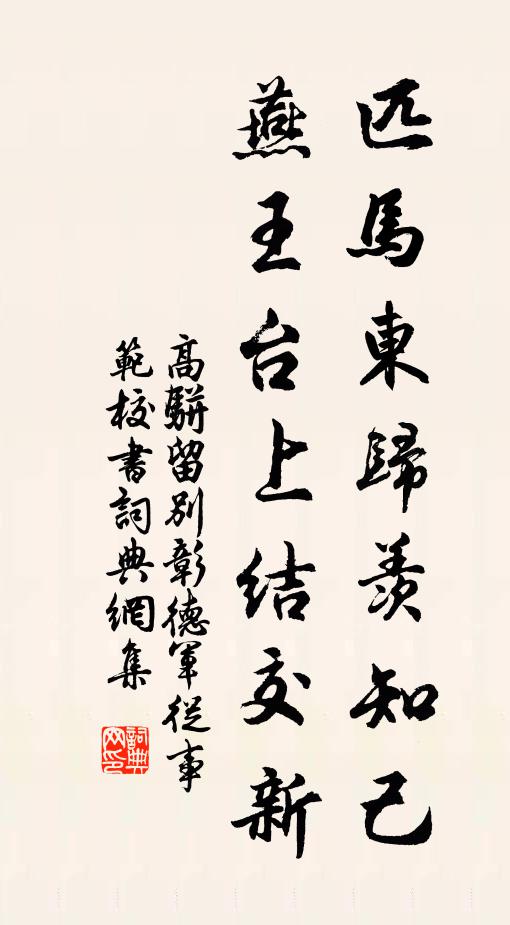 匹馬東歸羨知己
燕王台上結交新
高駢留別彰德軍從事
範校書詞典網集
詞典网印